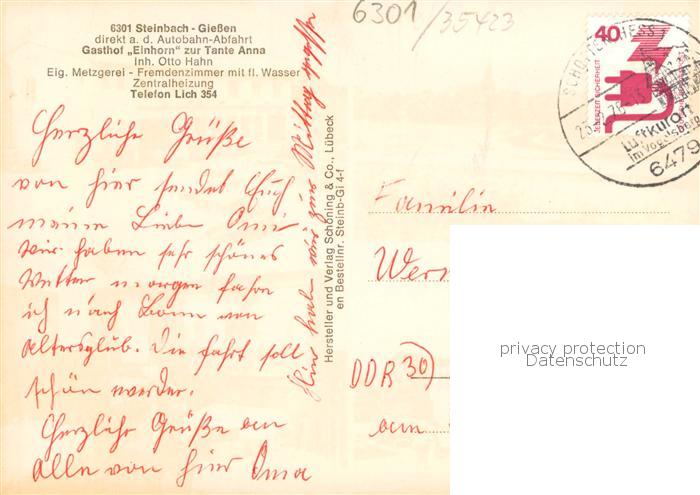 6301 Steinbach - Gießen
direkt a. d. Autobahn-Abfahrt
Gasthof „Einhorn" zur Tante Anna
Inh. Otto Hahn
Eig. Metzgerei - Fremdenzimmer mit fl. Wasser
Zentralheizung
Telefon Lich 354
Herzliche Grüße
von hier sendet Euch
meine Liebe Omi
Wir haben sehr schönes
Wetter morgen fahre
ich nach Bonn von
Altersglub. Die fahrt soll
schön werden.
Herzliche Grüße an
alle von hier Oma
Hier haben wir zum Mittag
Hersteller und Verlag Schöning & Co., Lübeck
en Bestellnr. Steinb-Gi 4-f
6301/35423
40
JEDERZEIT SICHERHEIT
SCHOTTEN, HESS
Luftkurort
im Vogelsberg
6479
Familie
Wern
DDR 30)
am
privacy protection
Datenschutz